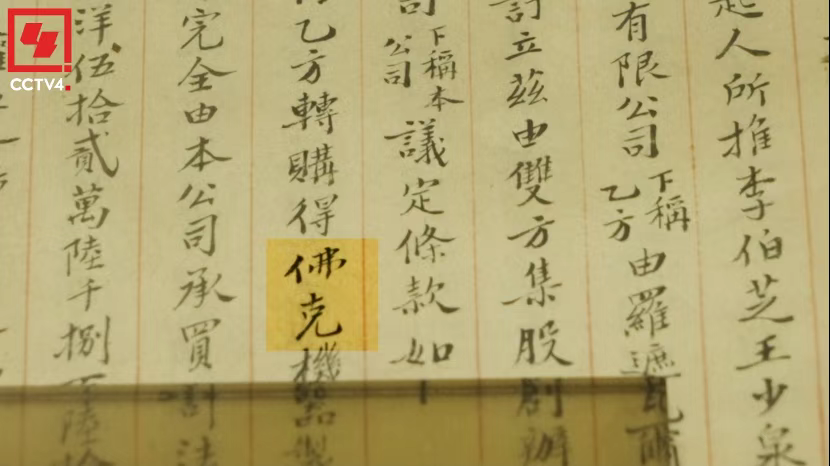 CCTV4
起人所推李伯芝王少泉
有限公司下稱乙方由羅遮
訂立茲由雙方集股創辦
司下稱本公司議定條款如
乙方轉購得佛克機器製
完全由本公司承買
洋伍拾貳萬陸千捌百陸拾